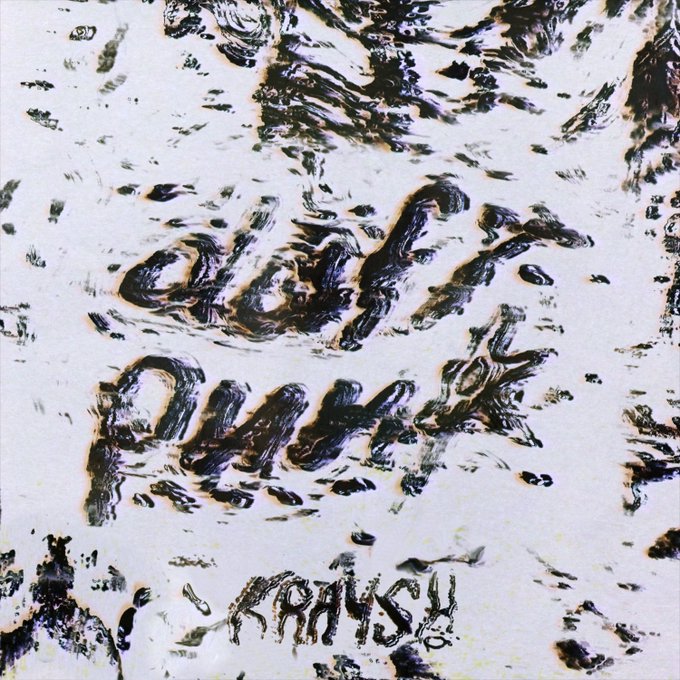 daft
punk
KRAYSH